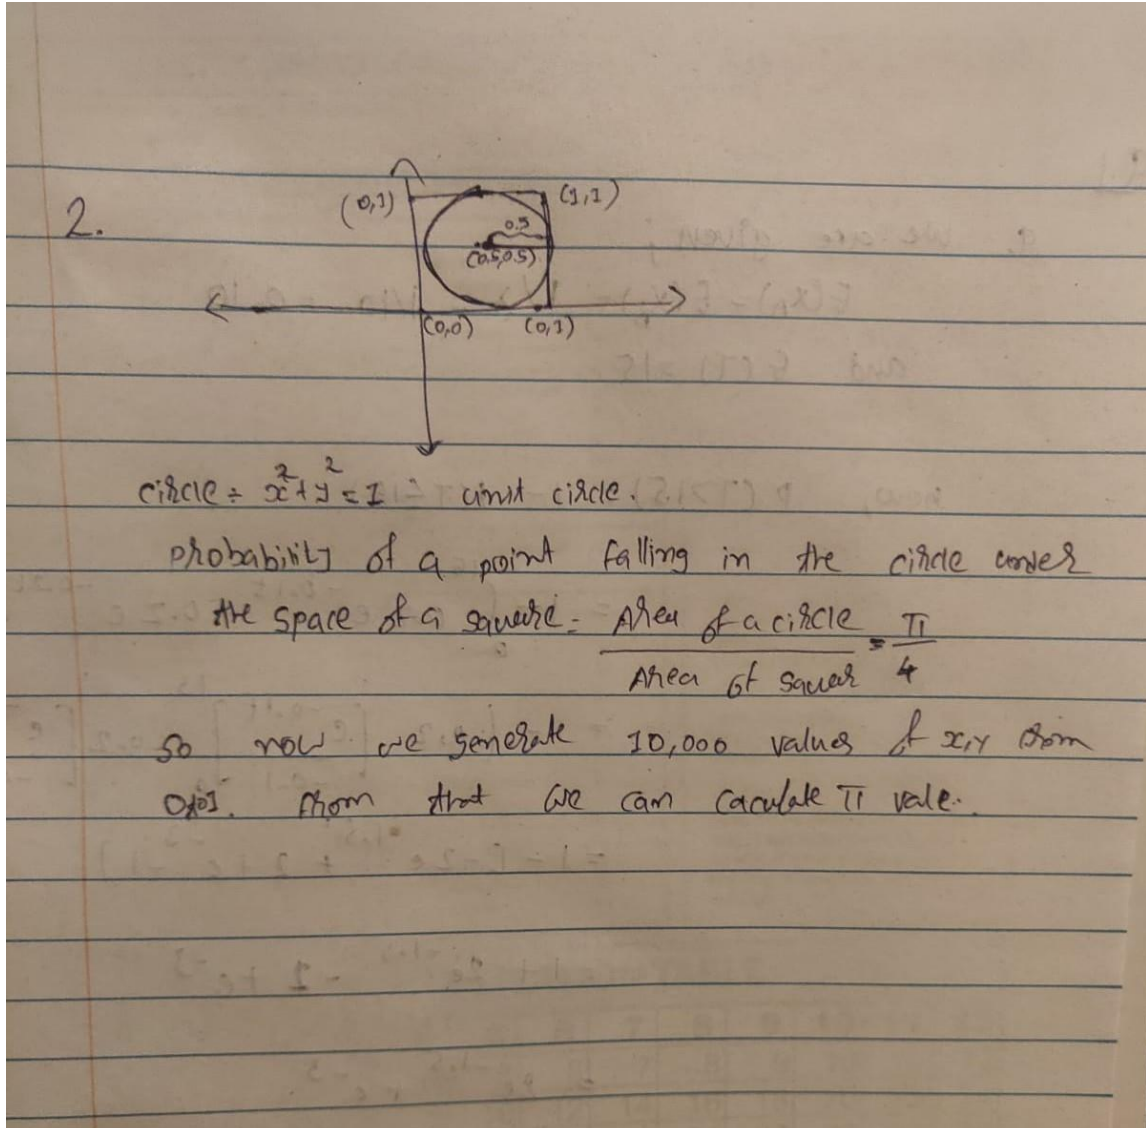 2.
(0,1)
(1,1)
0.5
(0.5,0.5)
(0,0)
(0,1)
circle ÷ x² + y² = 1 = unit circle.
probability of a point falling in the circle under
the space of a square = Area of a circle / Area of squar = π/4
so now we generate 10,000 values of x,y from
0to1. from that we can caculate π vale.